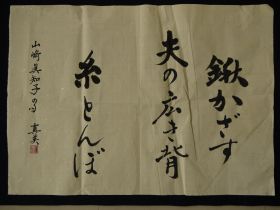 鍬かざす
夫の広き背
糸とんぼ
山崎美知子の句 真美